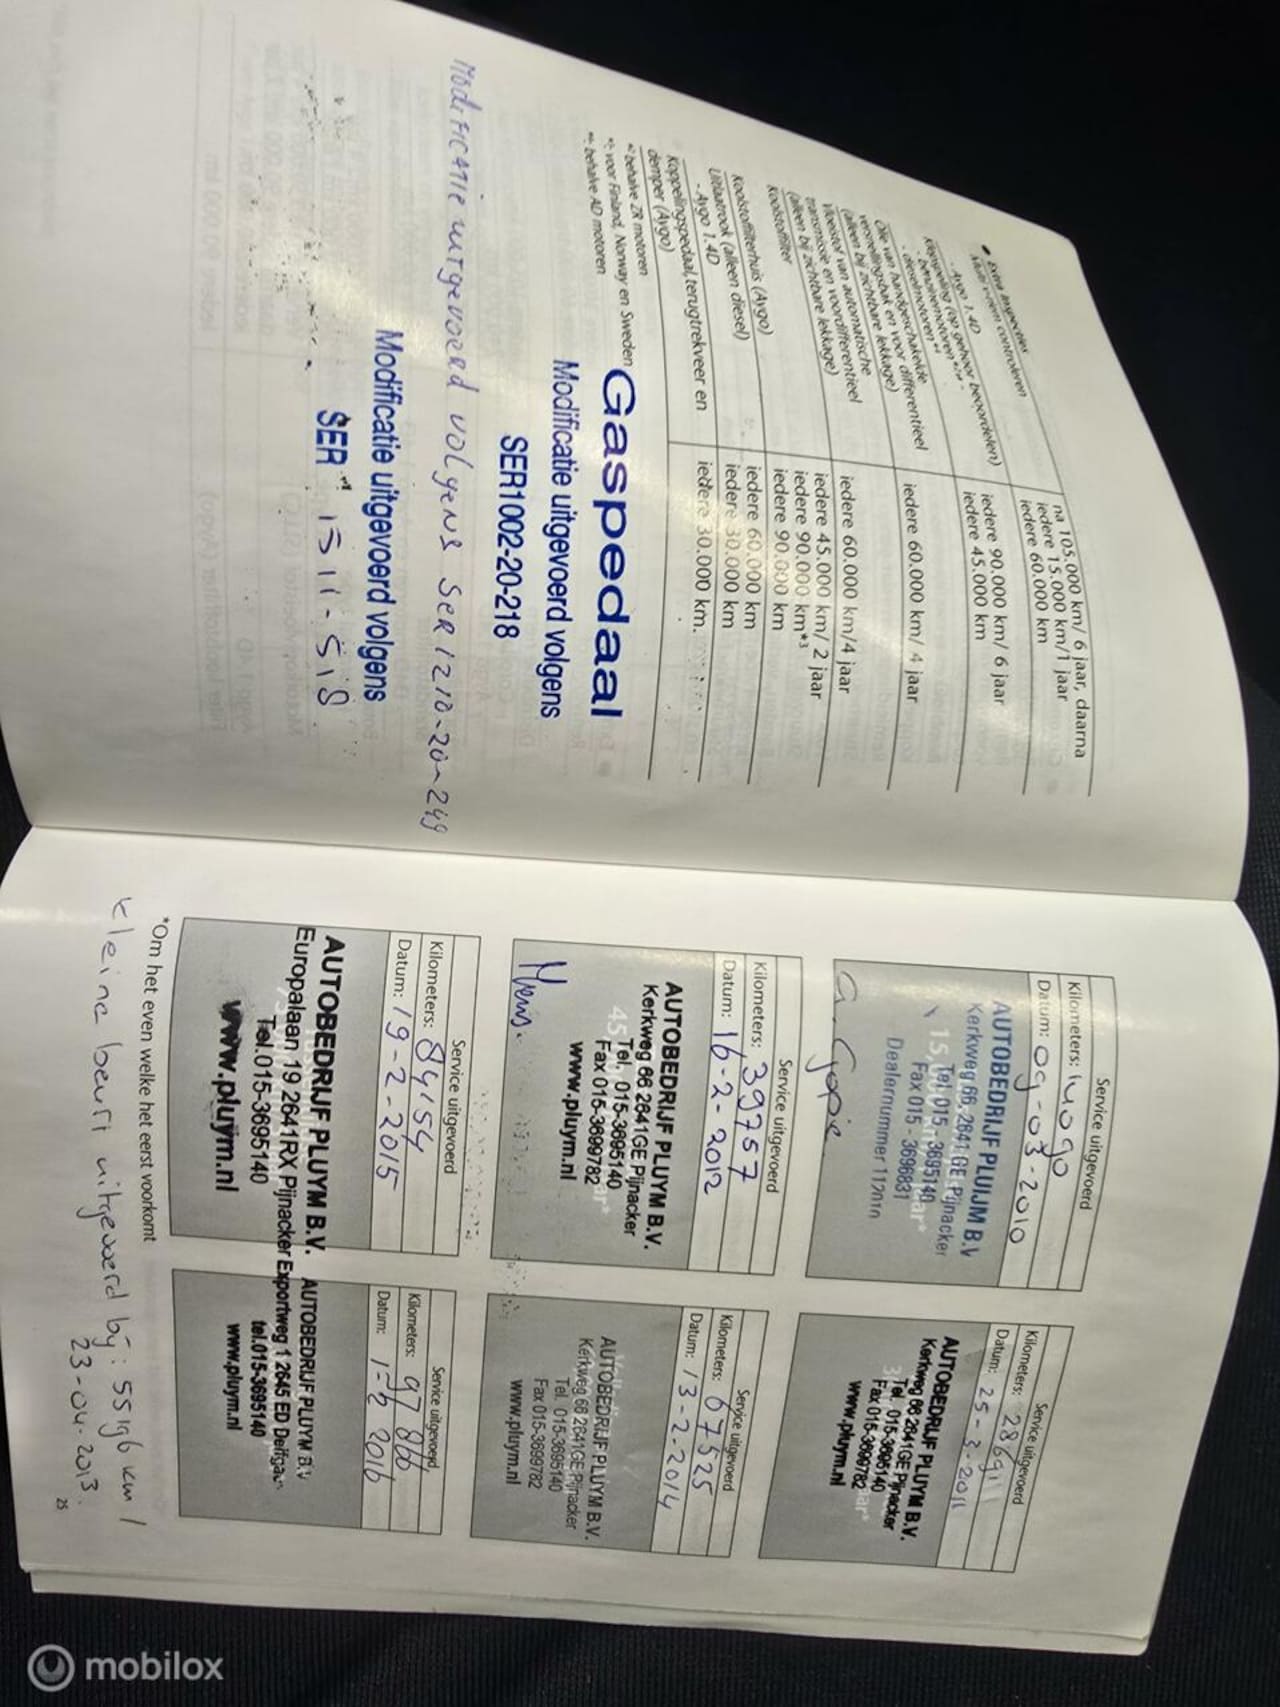 • Extra inspecties
Multi V-riem controleren
na 105.000 km/ 6 jaar, daarna
iedere 15.000 km/1 jaar
- Aygo 1.4D
iedere 60.000 km
Klepspeling (op gehoor beoordelen)
- benzinemotoren
iedere 90.000 km/ 6 jaar
- dieselmotoren*4
iedere 45.000 km
Olie van handgeschakelde
versnellingsbak en voor differentieel
(alleen bij zichtbare lekkage)
iedere 60.000 km/ 4 jaar
Vloeistof van automatische
transmissie en voordifferentieel
(alleen bij zichtbare lekkage)
iedere 60.000 km/4 jaar
Koolstoffilter
iedere 45.000 km/ 2 jaar
iedere 90.000 km*3
iedere 90.000 km
Koolstoffilterhuis (Aygo)
iedere 60.000 km
Uitlaatrook (alleen diesel)
iedere 30.000 km
- Aygo 1.4D
Koppelingspedaal,terugtrekveer en
demper (Aygo)
iedere 30.000 km.
*2 behalve ZR motoren
*3: voor Finland, Norway en Sweden
*4: behalve AD motoren
Gaspedaal
Modificatie uitgevoerd volgens
SER1002-20-218
Modificatie uitgevoerd volgens SER1210-20-249
Modificatie uitgevoerd volgens
SER 1311-518
Service uitgevoerd
Kilometers:
Datum: 09-03-2010
AUTOBEDRIJF PLUIJM B.V
Kerkweg 66, 2641 GE Pijnacker
Tel. 015. 3695140
Fax 015 . 3696831
Dealernummer 112010
Service uitgevoerd
Kilometers: 28691
Datum: 25-3-2011
AUTOBEDRIJF PLUYM B.V.
Kerkweg 66 2641GE Pijnacker
Tel. 015-3695140
Fax 015-3699782
www.pluym.nl
Service uitgevoerd
Kilometers: 39757
Datum: 16-2-2012
AUTOBEDRIJF PLUYM B.V.
Kerkweg 66 2641GE Pijnacker
Tel. 015-3695140
Fax 015-3699782
www.pluym.nl
Service uitgevoerd
Kilometers: 67525
Datum: 13-2-2014
AUTOBEDRIJF PLUYM B.V.
Kerkweg 66 2641GE Pijnacker
Tel. 015-3695140
Fax 015-3699782
www.pluym.nl
Service uitgevoerd
Kilometers: 84154
Datum: 19-2-2015
AUTOBEDRIJF PLUYM B.V.
Europalaan 19 2641RX Pijnacker
Tel.015-3695140
www.pluym.nl
Service uitgevoerd
Kilometers: 97866
Datum: 1-2 2016
AUTOBEDRIJF PLUYM B.V
Exportweg 1 2645 ED Delfgauw
tel.015-3695140
www.pluym.nl
*Om het even welke het eerst voorkomt
kleine beurt uitgevoerd bij: 55196 km /
23-04-2013.
25
mobilox